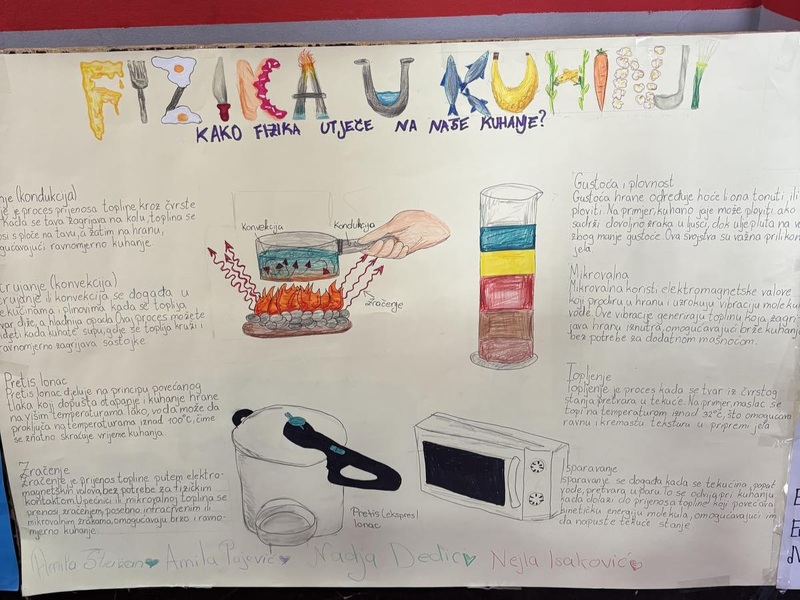 FIZIKA U KUHINJI
KAKO FIZIKA UTJEČE NA NAŠE KUHANJE?
nje (kondukcija)
je je proces prijenosa topline kroz čvrste
kada se tava zagrijava na kolu, toplina se
osi s ploče na tavu, a zatim na hranu,
ogućavajući ravnomjerno kuhanje.
crujanje (konvekcija)
crujanje ili konvekcija se događa u
tekućinama i plinovima kada se toplija
tvar diže, a hladnija opada. Ovaj proces možete
vidjeti kada kuhate supu, gdje se toplija kruži i
ravnomjerno zagrijava sastojke
Pretis lonac
Pretis lonac djeluje na principu povećanog
tlaka koji dopušta otapanje i kuhanje hrane
na višim temperaturama. Tako, voda može da
proključa na temperaturama iznad 100°C, čime
se znatno skraćuje vrijeme kuhanja.
Zračenje
Zračenje je prijenos topline putem elektro-
magnetskih valova, bez potrebe za fizičkim
kontaktom. U pećnici ili mikrovalnoj toplina se
prenosi zračenjem, posebno infracrvenim ili
mikrovalnim zrakama, omogućavaju brzo i ravno-
mjerno kuhanje.
konvekcija
kondukcija
zračenje
Pretis (ekspres)
lonac
Gustoća i plovnost
Gustoća hrane određuje hoće li ona tonuti ili
ploviti. Na primjer, kuhano jaje može ploviti ako
sadrži dovoljno zraka u ljusci, dok ulje pluta na v
zbog manje gustoće. Ova svojstva su važna prilikom
jela
Mikrovalna
Mikrovalna koristi elektromagnetske valove
koji prodiru u hranu i uzrokuju vibraciju moleku
vode. Ove vibracije generiraju toplinu koja zagri
java hranu iznutra, omogućavajući brže kuhanje
bez potrebe za dodatnom masnoćom.
Topljenje
Topljenje je proces kada se tvar iz čvrstog
stanja pretvara u tekuće. Na primjer, maslac se
topi na temperaturom iznad 32°C, što omogućava
ravnu i kremastu teksturu u pripremi jela
Isparavanje
Isparavanje se događa kada se tekućina, poput
vode, pretvara u paru. To se odvija pri kuhanju
kada dolazi do prijenosa topline koji povećava
kinetičku energiju molekula, omogućavajući im
da napuste tekuće stanje
Amila Slozan Amila Pajević Nadja Dedic Nejla Isaković